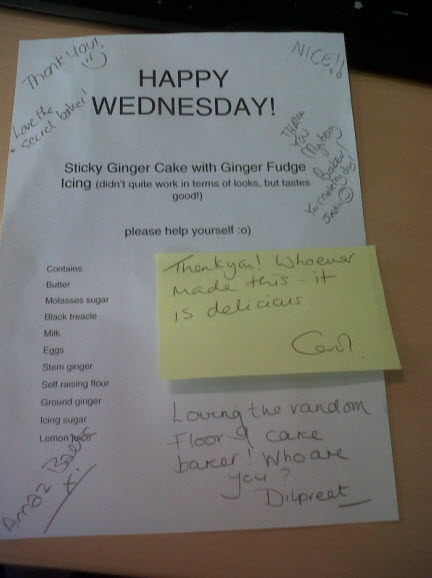 Thank you!
Love the
secret baker!
NICE!!
HAPPY
WEDNESDAY!
Thank
You
Mystery
Baker!
for making my day!
Sticky Ginger Cake with Ginger Fudge
Icing (didn't quite work in terms of looks, but tastes
good!)
please help yourself :o)
Contains:
Butter
Molasses sugar
Black treacle
Milk
Eggs
Stem ginger
Self raising flour
Ground ginger
Icing sugar
Lemon juice
Thankyou! Whoever
made this - it
is delicious.
Carol.
Loving the random
Floor 9 cake
baker! Who are
you?
Dilpreet